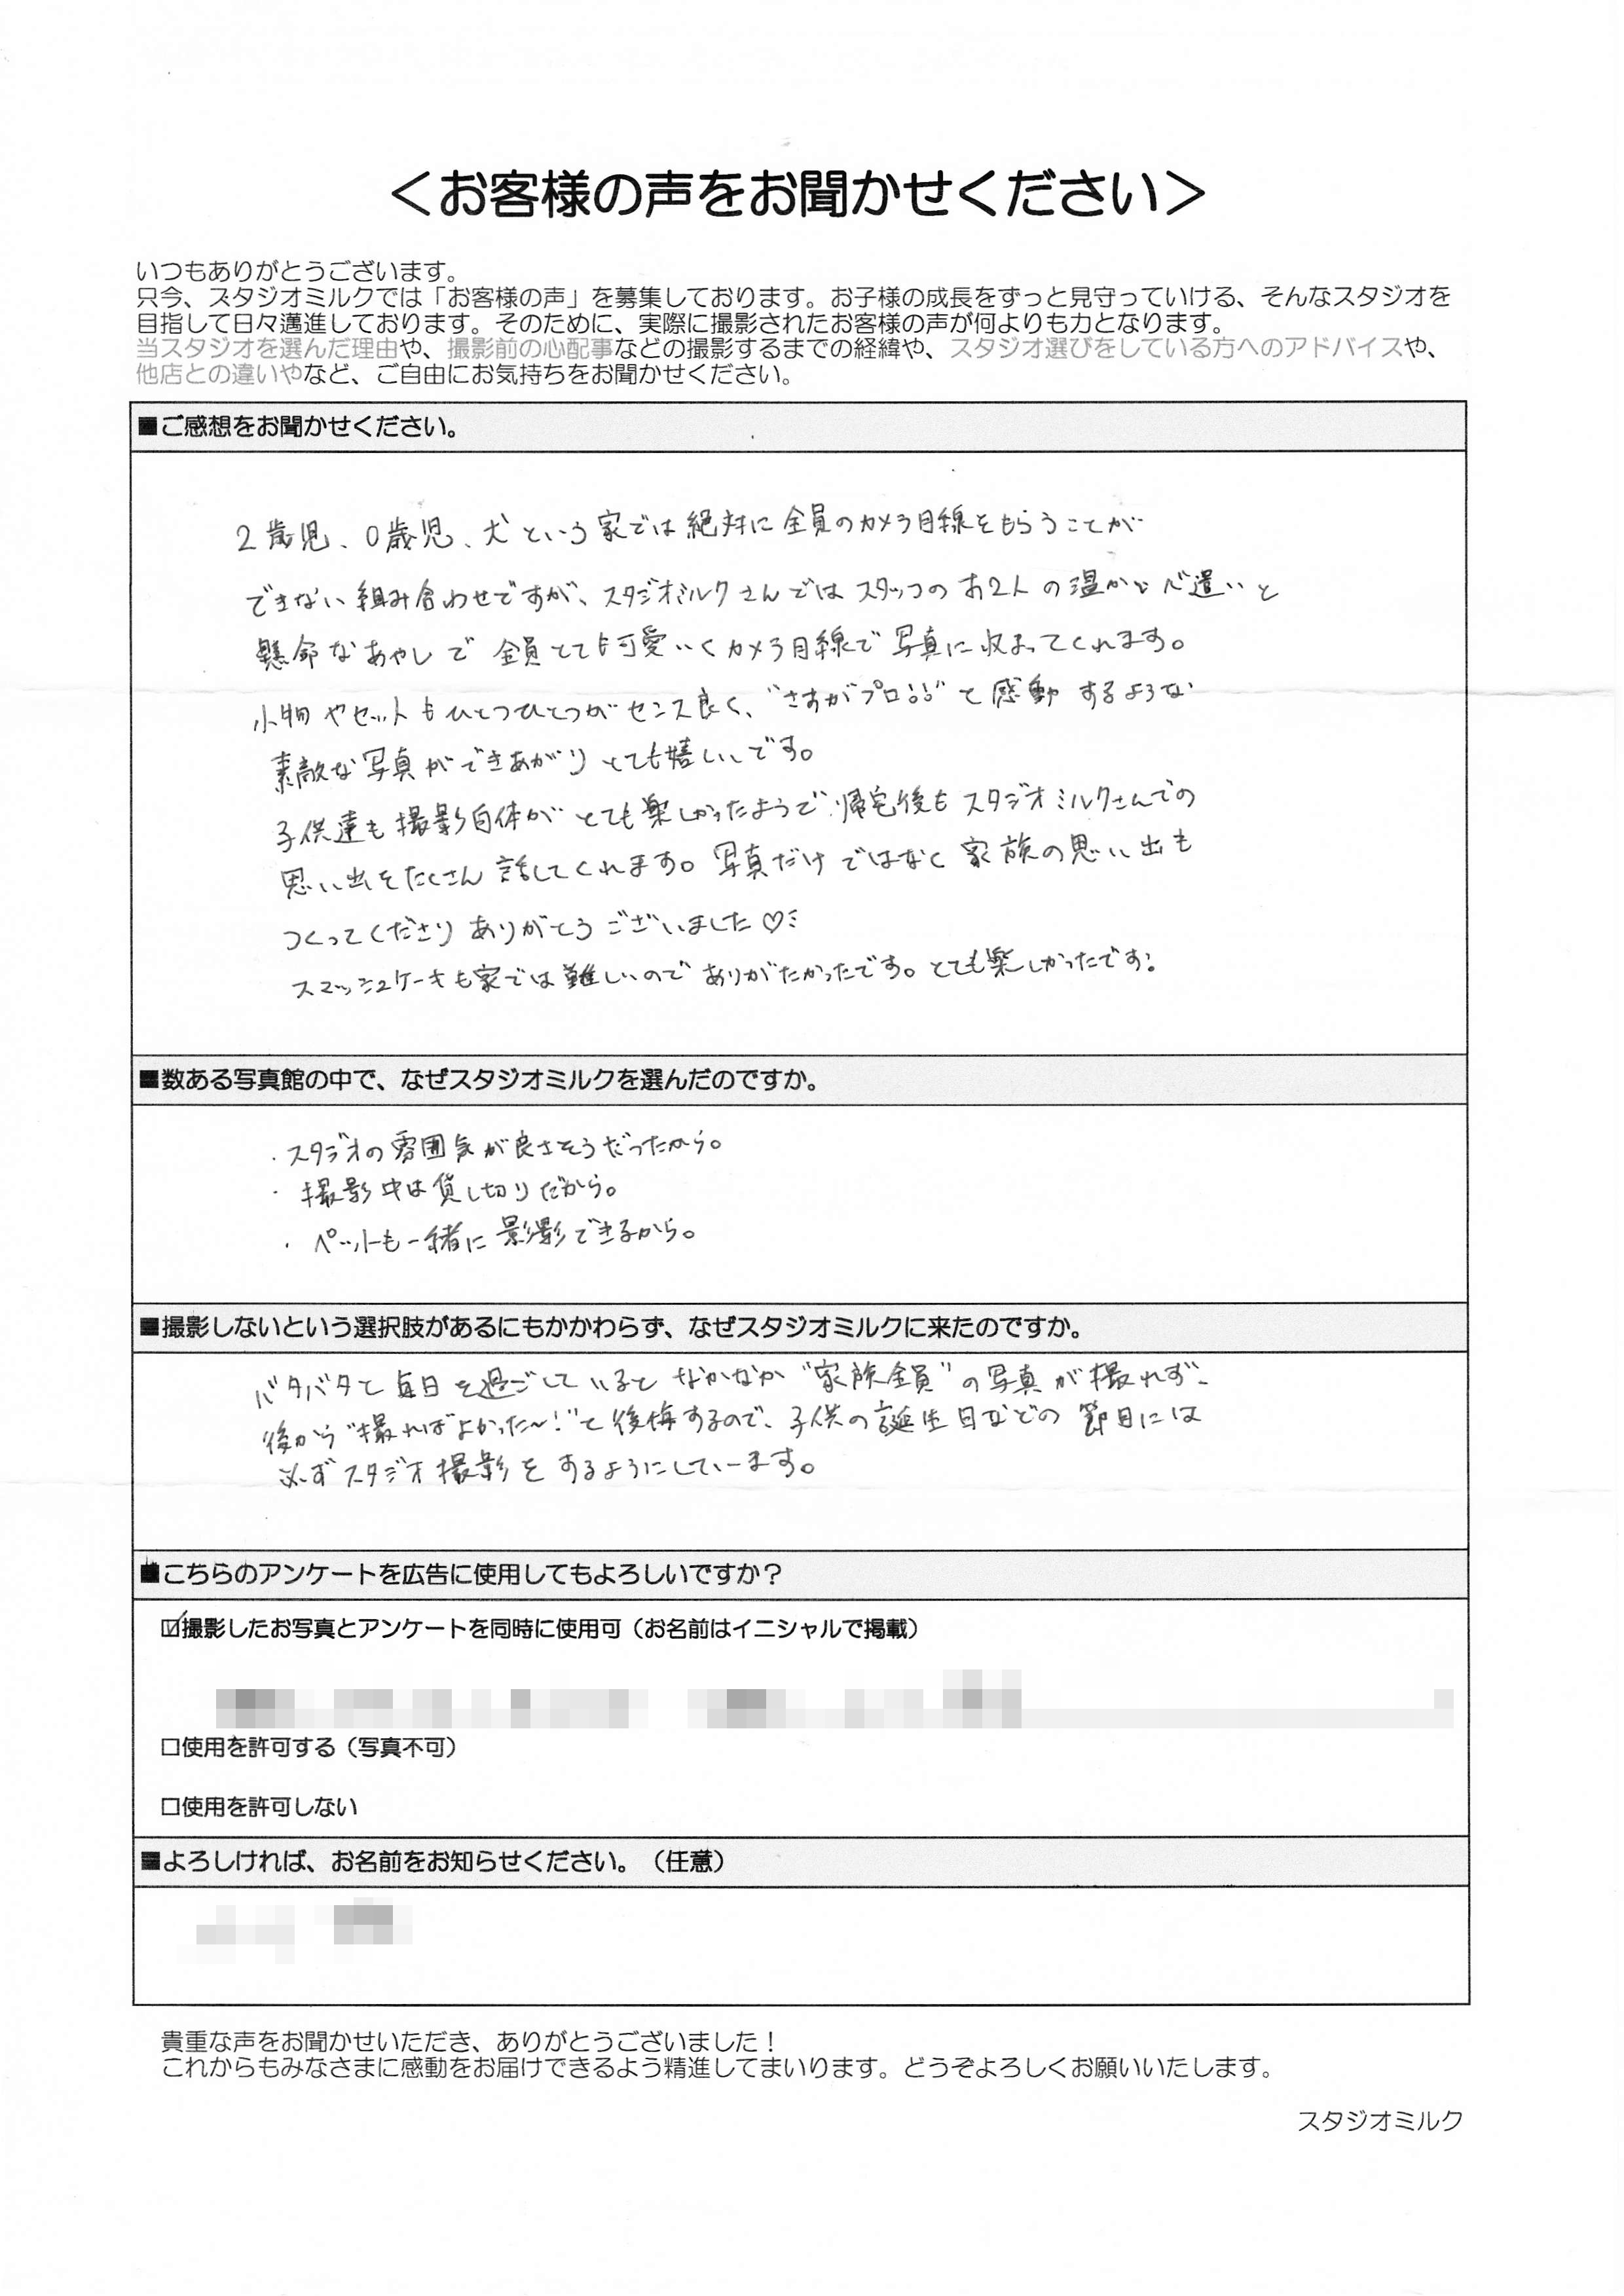 ＜お客様の声をお聞かせください＞
いつもありがとうございます。
只今、スタジオミルクでは「お客様の声」を募集しております。お子様の成長をずっと見守っていける、そんなスタジオを
目指して日々邁進しております。そのために、実際に撮影されたお客様の声が何よりも力となります。
当スタジオを選んだ理由や、撮影前の心配事などの撮影するまでの経緯や、スタジオ選びをしている方へのアドバイスや、
他店との違いやなど、ご自由にお気持ちをお聞かせください。
■ご感想をお聞かせください。
2歳児、0歳児、犬という家では絶対に全員のカメラ目線をもらうことが
できない組み合わせですが、スタジオミルクさんではスタッフのお2人の温かい心遣いと
懸命なあやしで全員とても可愛いくカメラ目線で写真に収まってくれます。
小物やセットもひとつひとつがセンス良く、"さすがプロ!!!"と感動するような
素敵な写真ができあがりとても嬉しいです。
子供達も撮影自体がとても楽しかったようで、帰宅後もスタジオミルクさんでの
思い出をたくさん話してくれます。写真だけではなく家族の思い出も
つくってくださりありがとうございました♡
スマッシュケーキも家では難しいのでありがたかったです。とても楽しかったです!
■数ある写真館の中で、なぜスタジオミルクを選んだのですか。
・スタジオの雰囲気が良さそうだったから。
・撮影中は貸し切りだから。
・ペットも一緒に影影できるから。
■撮影しないという選択肢があるにもかかわらず、なぜスタジオミルクに来たのですか。
バタバタと毎日を過ごしているとなかなか"家族全員"の写真が撮れず、
後から"撮ればよかった〜!"と後悔するので、子供の誕生日などの節目には
必ずスタジオ撮影をするようにしています。
■こちらのアンケートを広告に使用してもよろしいですか？
☑撮影したお写真とアンケートを同時に使用可（お名前はイニシャルで掲載）
□使用を許可する（写真不可）
□使用を許可しない
■よろしければ、お名前をお知らせください。（任意）
貴重な声をお聞かせいただき、ありがとうございました！
これからもみなさまに感動をお届けできるよう精進してまいります。どうぞよろしくお願いいたします。
スタジオミルク